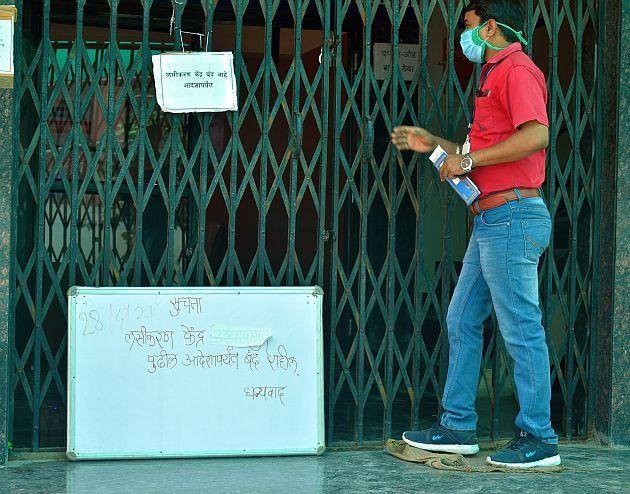 लसीकरण केंद्र बंद आहे
आदेशापर्यंत
28/4/21
सुचना
लसीकरण केंद्र
पुढील आदेशापर्यंत बंद राहील.
धन्यवाद